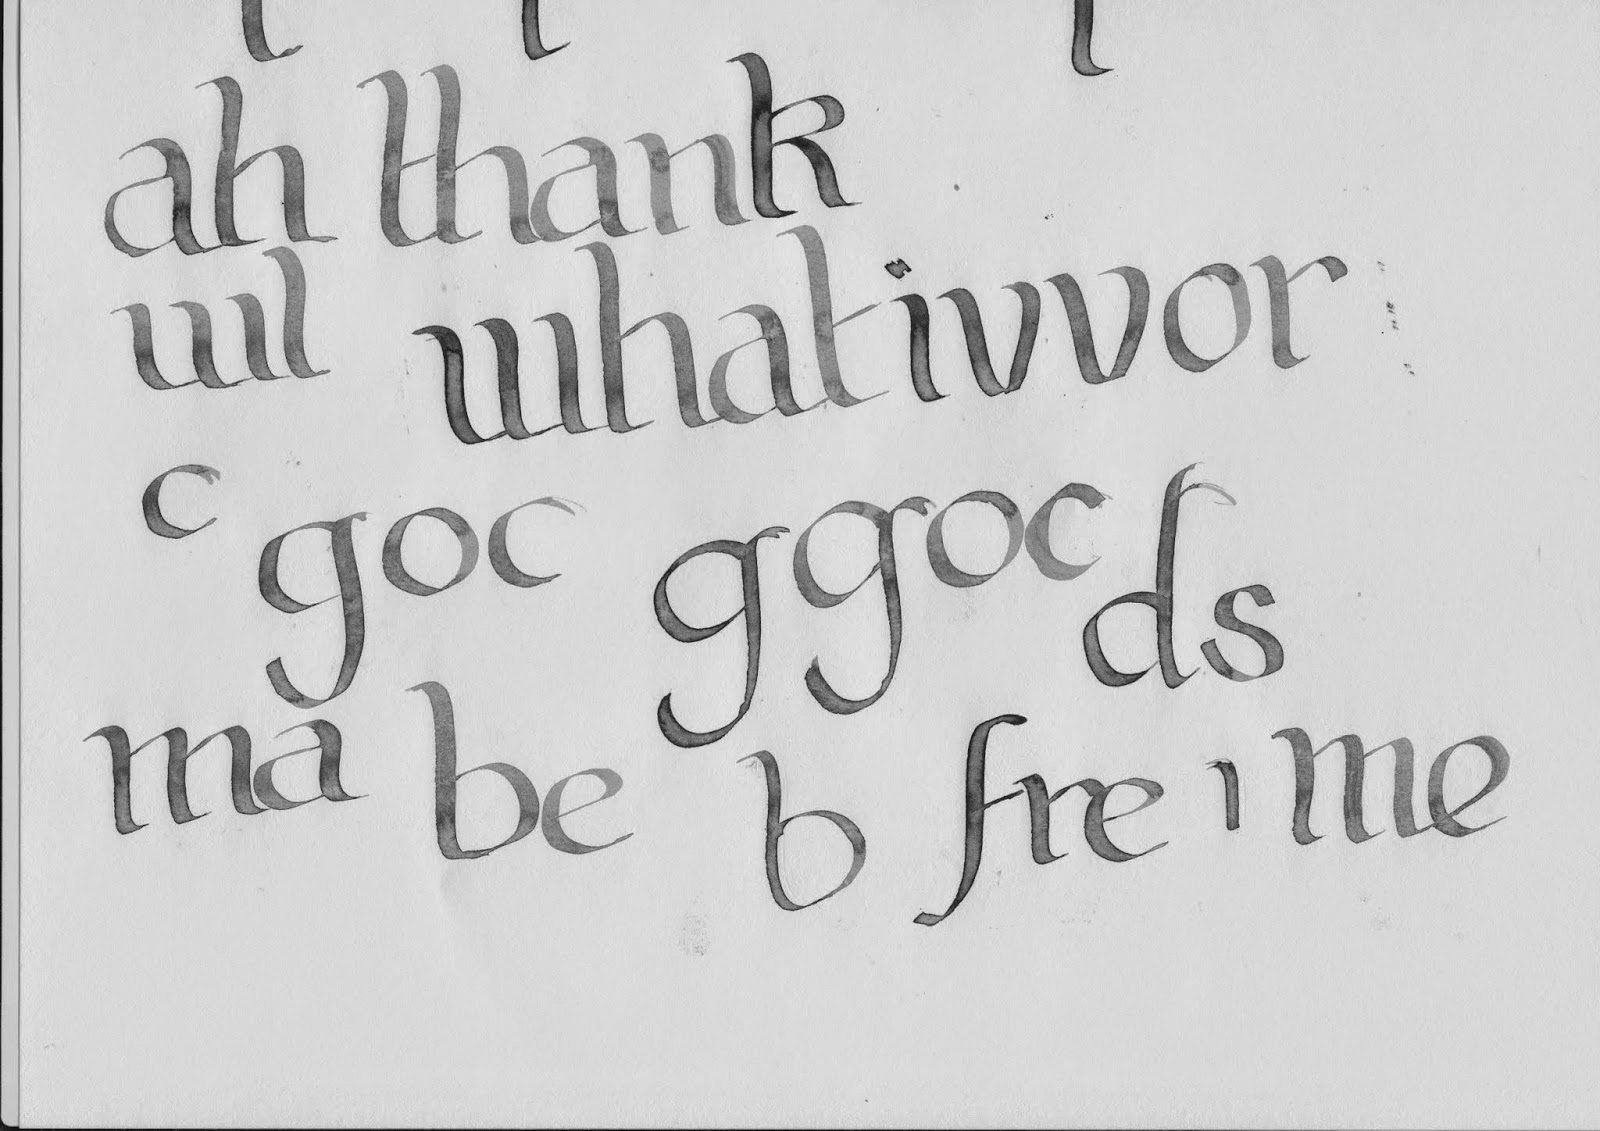 ah thank
wl whativvor
c goc ggoc ds
ma be b fre ı me